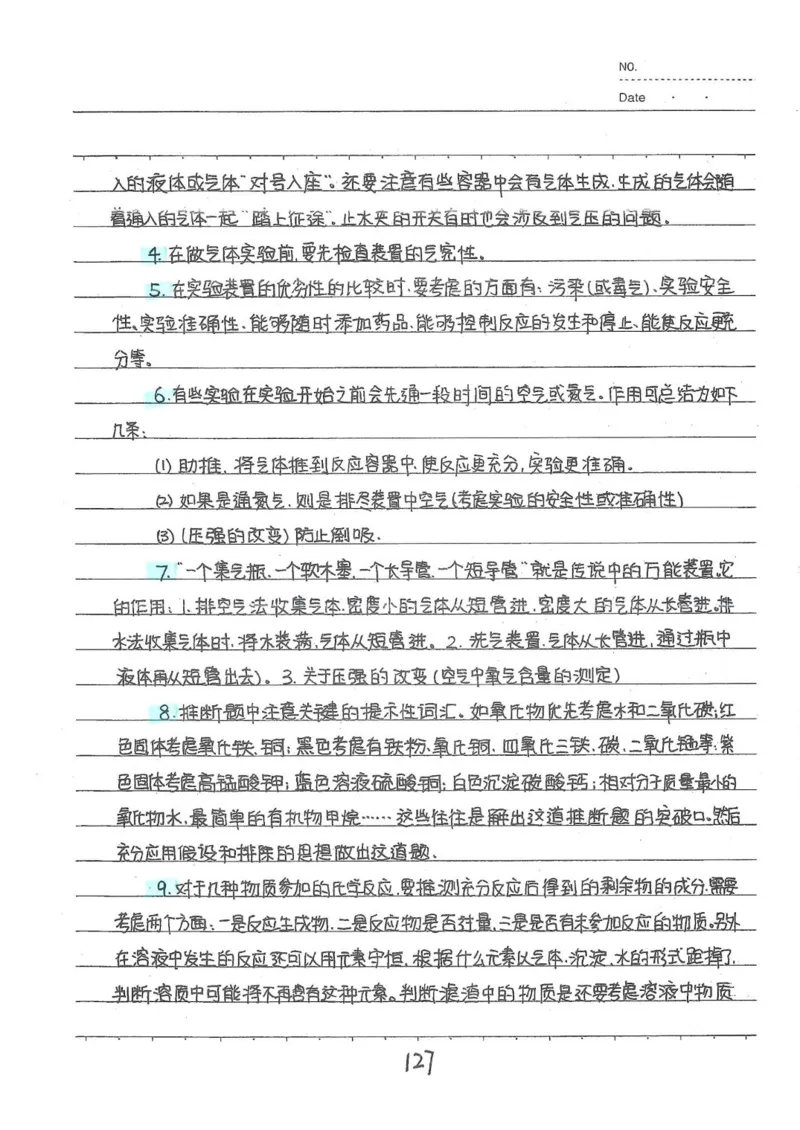 NO.
Date
入的液体或气体“对号入座”。还要注意有些容器中会有气体生成,生成的气体会随
着通入的气体一起“踏上征途”。止水夹的开关有时也会涉及到气压的问题。
4.在做气体实验前,要先检查装置的气密性。
5.在实验装置的优劣性的比较时,要考虑的方面有:污染(或毒气)、实验安全
性、实验准确性、能够随时添加药品、能够控制反应的发生和停止、能使反应更充
分等。
6.有些实验在实验开始之前会先通一段时间的空气或氮气。作用可总结为如下
几条:
(1)助推,将气体推到反应容器中,使反应更充分,实验更准确。
(2)如果是通氮气,则是排尽装置中空气(考虑实验的安全性或准确性)
(3)(压强的改变)防止倒吸.
7.“一个集气瓶、一个软木塞、一个长导管、一个短导管”就是传说中的万能装置。它
的作用:1.排空气法收集气体,密度小的气体从短管进,密度大的气体从长管进。排
水法收集气体时,将水装满,气体从短管进。2.洗气装置,气体从长管进,通过瓶中
液体再从短管出去)。3.关于压强的改变(空气中氧气含量的测定)
8.推断题中注意关键的提示性词汇。如氧化物优先考虑水和二氧化碳;红
色固体考虑氧化铁、铜;黑色考虑有铁粉、氧化铜、四氧化三铁、碳、二氧化锰等;紫
色固体考虑高锰酸钾;蓝色溶液硫酸铜;白色沉淀碳酸钙;相对分子质量最小的
氧化物水,最简单的有机物甲烷……这些往往是解出这道推断题的突破口。然后
充分应用假设和排除的思想做出这道题.
9.对于几种物质参加的化学反应,要推测充分反应后得到的剩余物的成分,需要
考虑两个方面:一是反应生成物,二是反应物是否过量,三是是否有未参加反应的物质。另外
在溶液中发生的反应还可以用元素守恒,根据什么元素以气体、沉淀、水的形式跑掉了,
判断溶质中可能将不再含有这种元素。判断滤渣中的物质是还要考虑溶液中物质
127